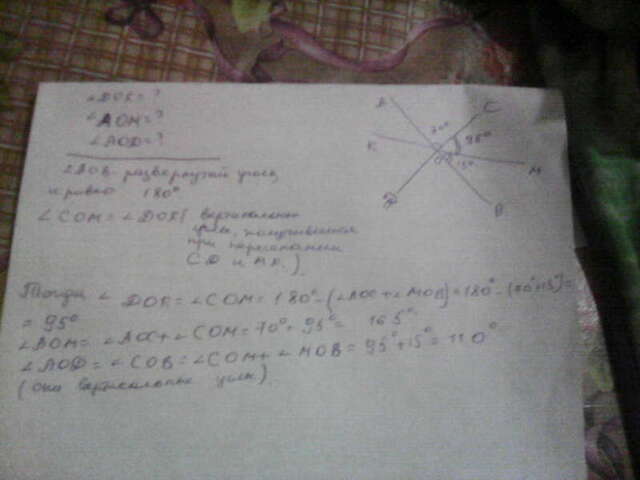 ∠DOK = ?
∠AOM = ?
∠AOD = ?
∠AOB - развернутый угол,
и равно 180°
∠COM = ∠DOK (вертикальные
углы,
при пересечении
CD и MK.)
Тогда ∠DOK = ∠COM = 180° - (∠AOC + ∠MOB) = 180° - (70° + 15°) =
= 95°
∠AOM = ∠AOC + ∠COM = 70° + 95° = 165°
∠AOD = ∠COB = ∠COM + ∠MOB = 95° + 15° = 110°
(они вертикальные углы)
A
C
70°
K
95°
O
15°
M
D
B